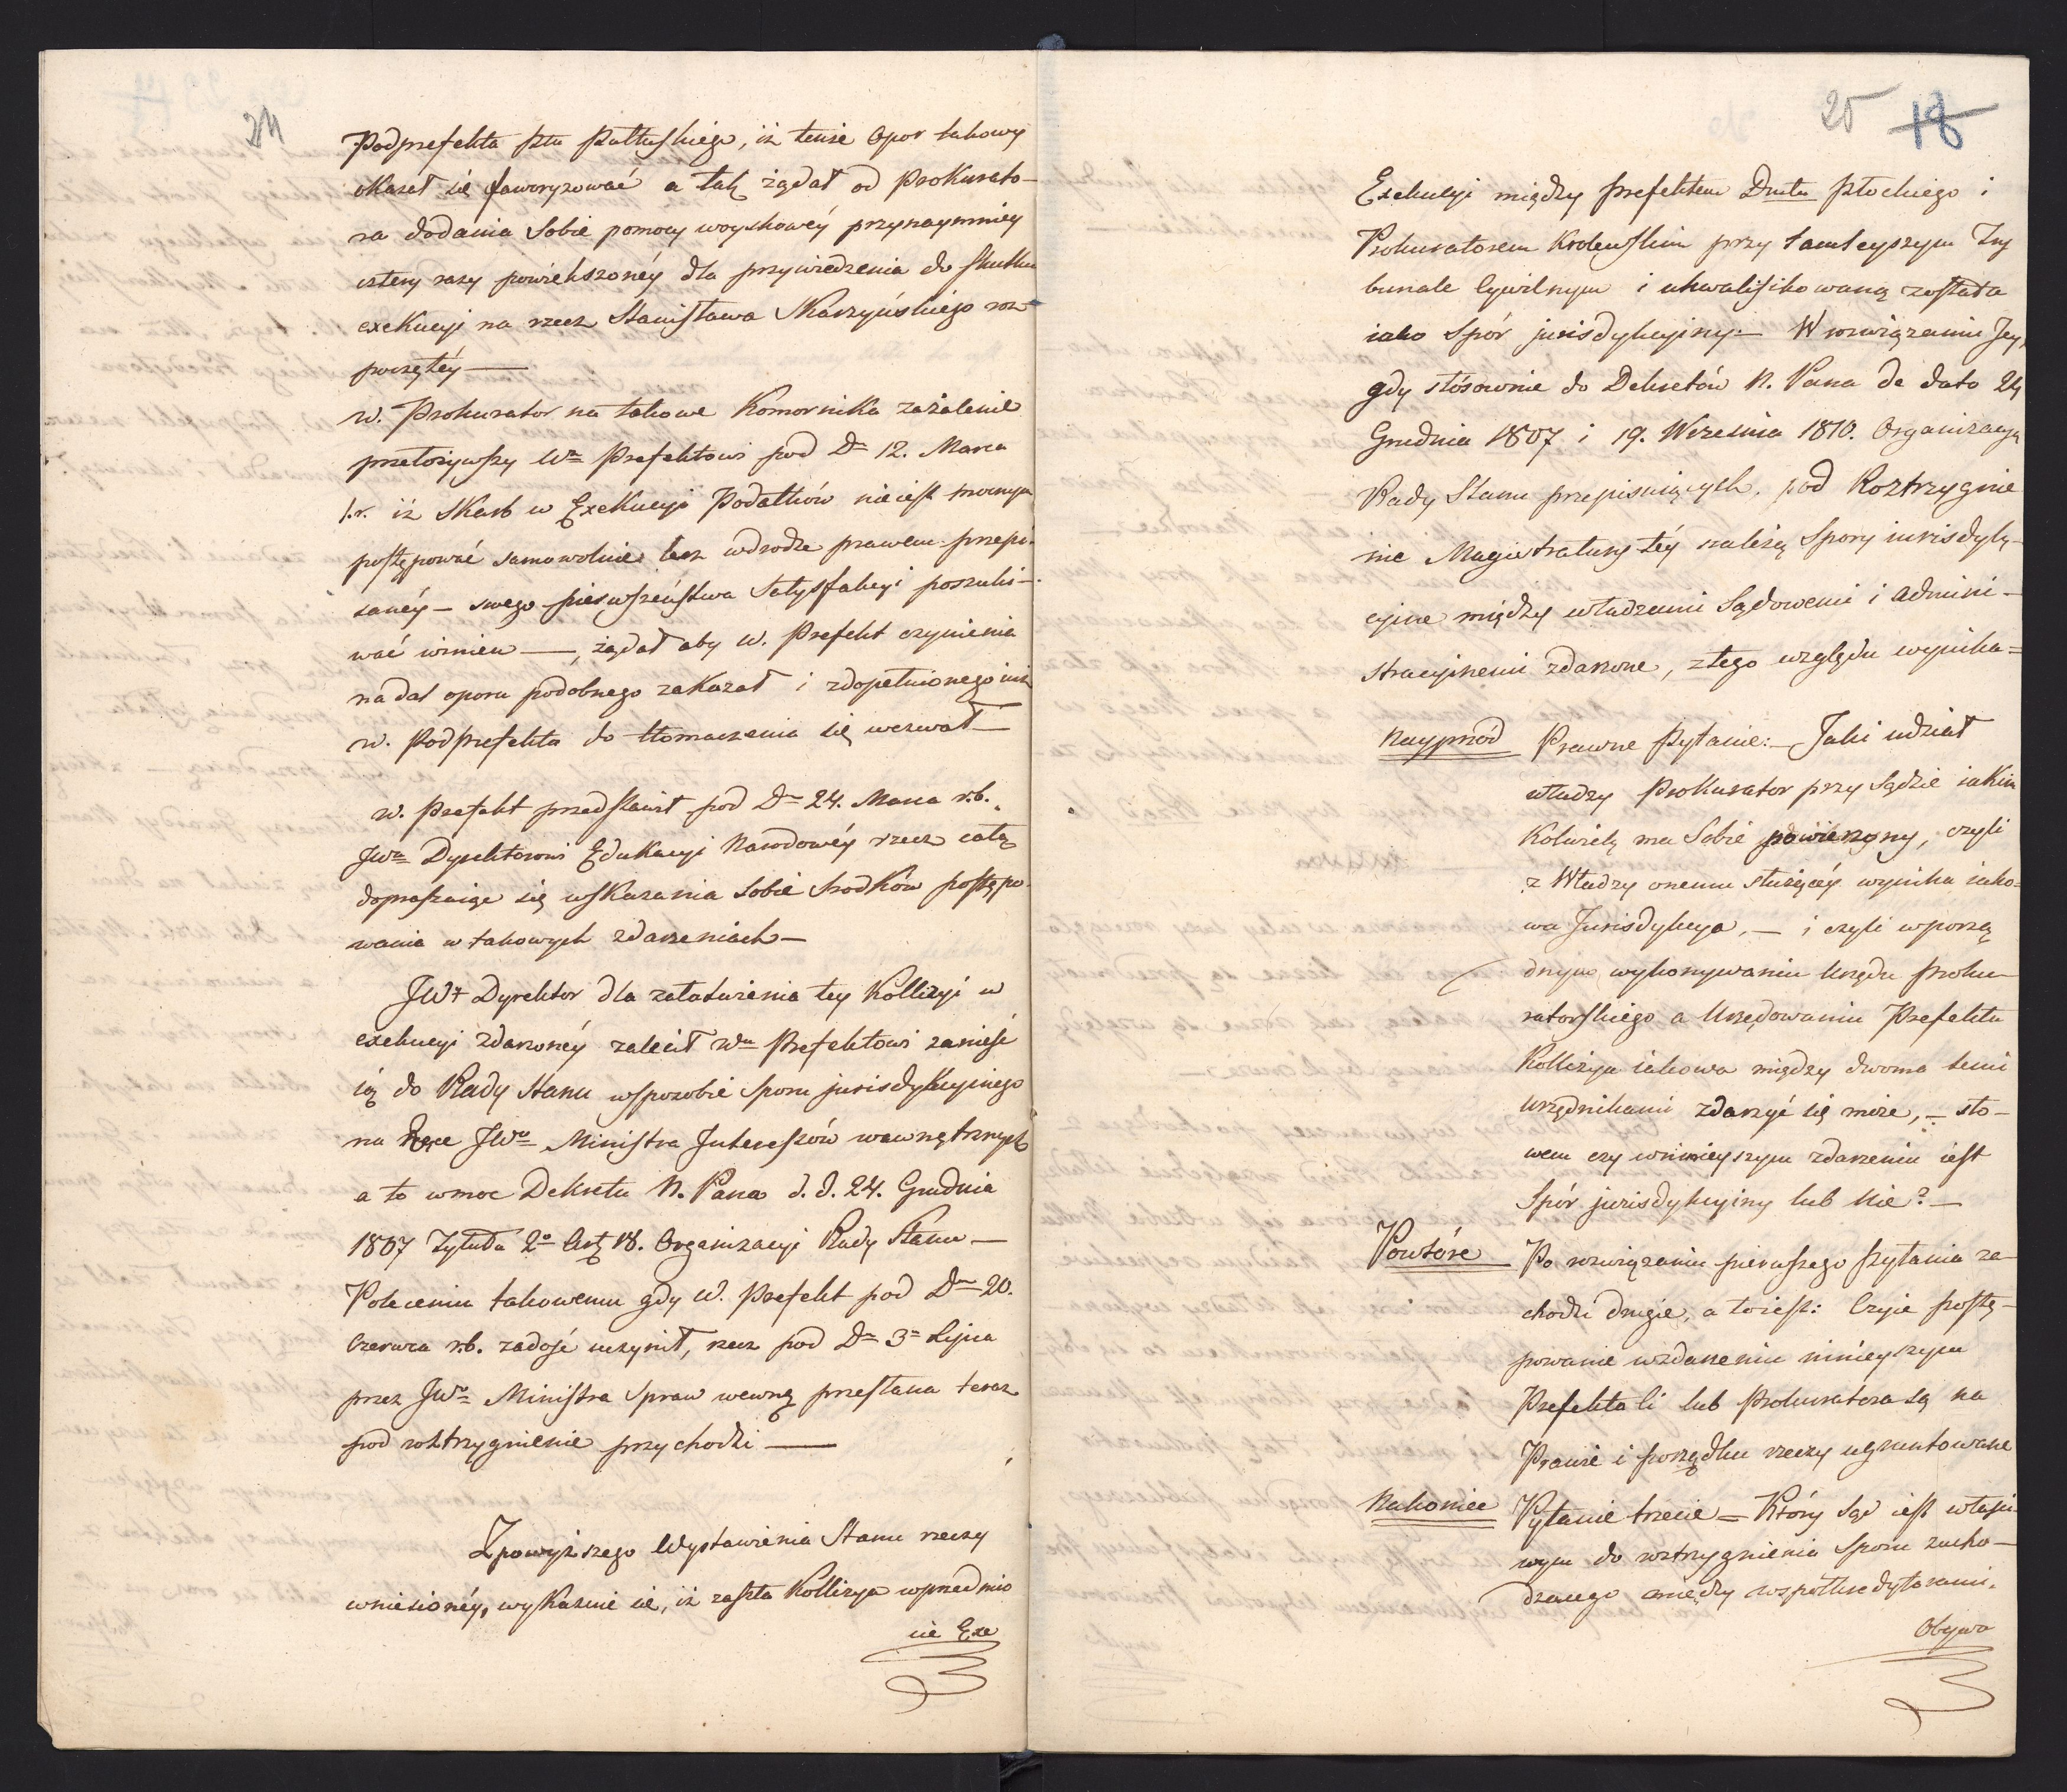 24
Podprefekta Pttu Pułtuskiego, iż tenże Opor takowy
okazał się faworyzować a tak żądał od Prokurato-
ra dodania Sobie pomocy woyskowéy przynaymniey
cztery razy powiększonéy dla przywiedzenia do skutku
exekucyi na rzecz Stanisława Skarzyńskiego roz-
poczętéy —
W. Prokurator na takowe Komornika zażalenie
przełożywszy Wu Prefektowi pod D. 12. Marca
r. iż Skarb w Exekucyi Podatków nie iest mocnym
postępować samowolnie lecz w drodze prawem przepi-
sanéy — swego pierwszeństwa Satysfakcyi poszuki-
wać winien —, żądał aby W. Prefekt czynienia
nadal oporu podobnego zakazał i z dopełnionego iuż
W. Podprefekta do tłomaczenia się wezwał —
W. Prefekt przedstawił pod D. 24. Marca r.b.
JWu Dyrektorowi Edukacyi Narodowéy rzecz całą
dopraszaiąc się wskazania sobie srodków postępo-
wania w takowych zdarzeniach —
JW. Dyrektor dla załatwienia tey Kollizyi w
exekucyi zdarzonéy zalecił Wu Prefektowi zanieść
ią do Rady Stanu w sposobie Sporu jurisdykcyinego
na Ręce JWu Ministra Interessów wewnętrznych
a to w moc Dekretu N. Pana d. d. 24. Grudnia
1807 Tytułu 2o Art. 18. Organizacyi Rady Stanu —
Poleceniu takowemu gdy W. Prefekt pod D. 20.
Czerwca r.b. zadość uczynił, rzecz pod D. 3. Lipca
przez JWo Ministra Spraw wewnę przesłana teraz
pod roztrzygnienie przychodzi —
Z powyższego Wystawienia Stanu rzeczy
wniesionéy, wykazuie się, iż zaszła Kollizya w przedmio
cie Exe
25 18
Exekucyi między Prefektem Dmtu Płockiego i
Prokuratorem Krolewskim przy tamteyszym Try
bunale Cywilnym i ukwalifikowaną została
iako Spór jurisdykcyiny — W rozwiązaniu Jey,
gdy stosownie do Dekretów N. Pana de dato 24
Grudnia 1807 i 19. Września 1810. Organizacyą
Rady Stanu przepisuiących, pod Roztrzygnie
nie Magistratury téy należą Spory iurisdyk-
cyine między władzami Sądowemi i admini-
stracyinemi zdarzone, z tego względu wynika=
Nayprzód Prawne Pytanie: — Jaki udział
władzy Prokurator przy Sądzie iakim
Kolwiek ma Sobie powierzony, czyli
z Władzy onemu służącéy wynika iako-
wa Jurisdykcya, — i czyli w porzą
dnym wykonywaniu Urzędu Proku-
ratorskiego a Urzędowaniu Prefekta
Kollizya iakowa między dwoma temi
Urzędnikami zdarzyć się może, — sło-
wem czy w ninieyszym zdarzeniu iest
Spór jurisdykcyiny lub nie? —
Powtóre Po rozwiązaniu pierwszego Pytania za-
chodzi drugie, a to iest: Czyie postę-
powanie w zdarzeniu ninieyszym
Prefekta li lub Prokuratora są na
Prawie i porządku rzeczy ugruntowane
Nakoniec Pytanie trzecie = Który Sąd iest właści-
wym do roztrzygnienia Sporu zacho-
dzącego między współkredytorami.
Obywa